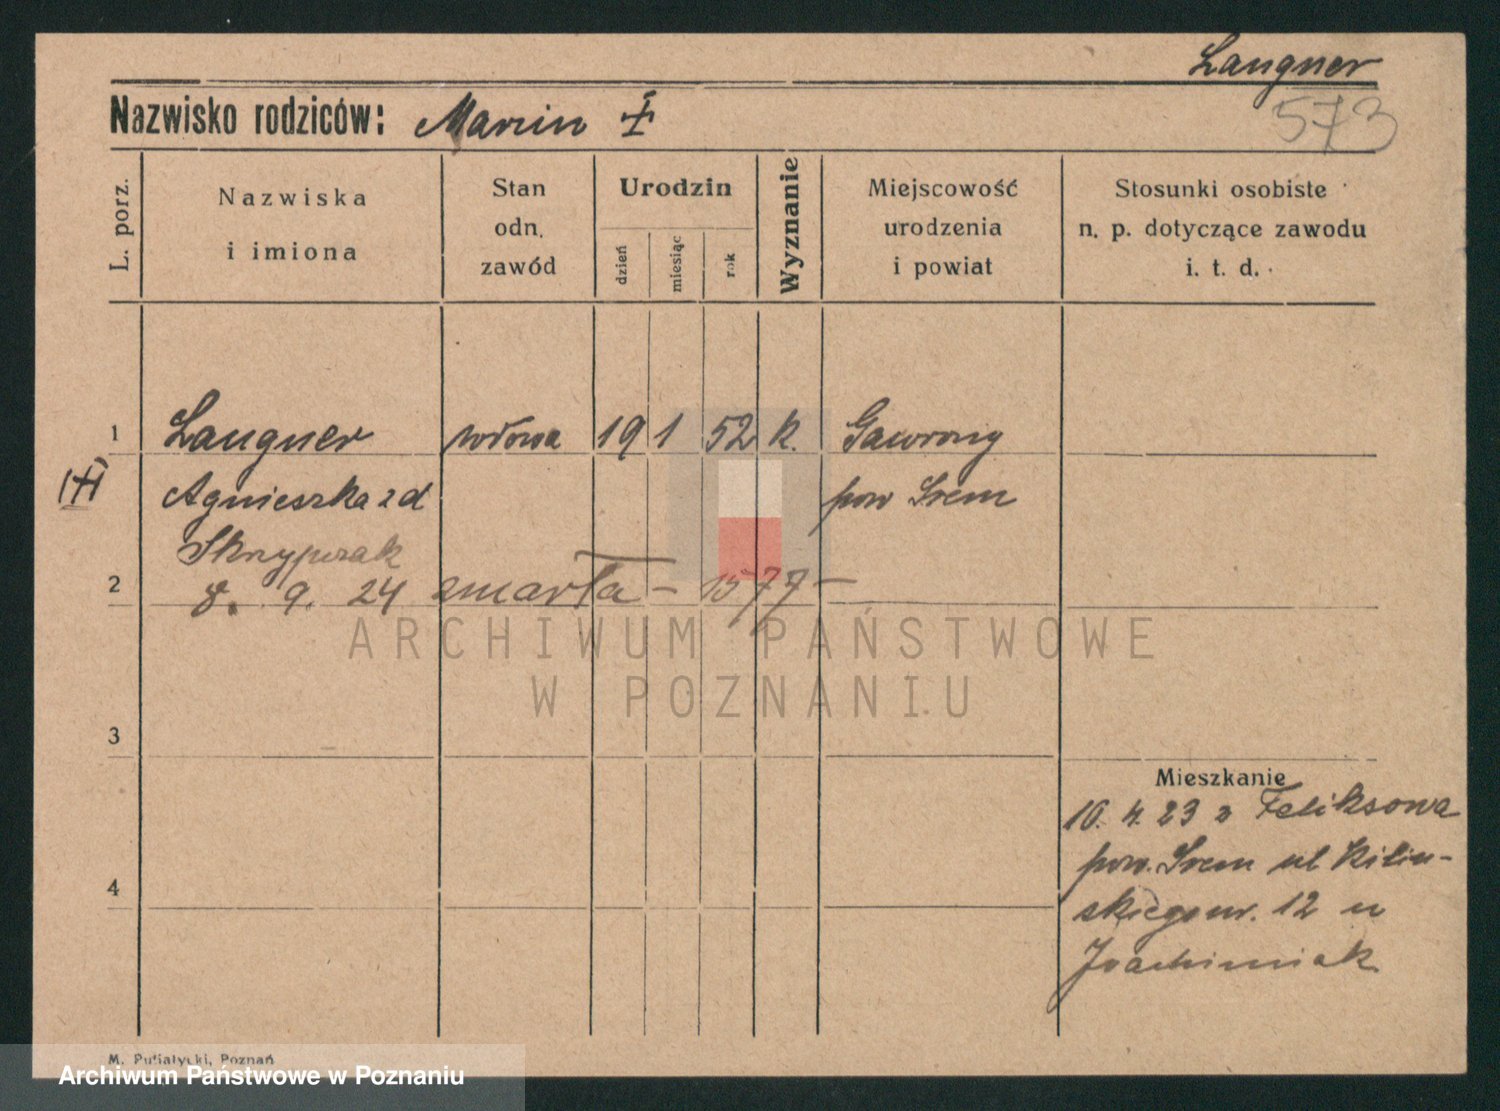 Langner
573
Nazwisko rodziców: Marcin ‡
L. porz.
Nazwiska
i imiona
Stan
odn.
zawód
Urodzin
dzień
miesiąc
rok
Wyznanie
Miejscowość
urodzenia
i powiat
Stosunki osobiste
n. p. dotyczące zawodu
i. t. d.
1 Langner wdowa 19 1 52 k. Gawrony
Agnieszka z d pow Śrem
Skrzypczak
2 8. 9. 24 zmarła – 1577 –
3
Mieszkanie
10. 4. 23 z Feliksowa
pow. Śrem ul Kiliń-
4
skiego nr. 12 u
Joachimiak
M. Putiatycki, Poznań
ARCHIWUM PAŃSTWOWE
W POZNANIU
Archiwum Państwowe w Poznaniu